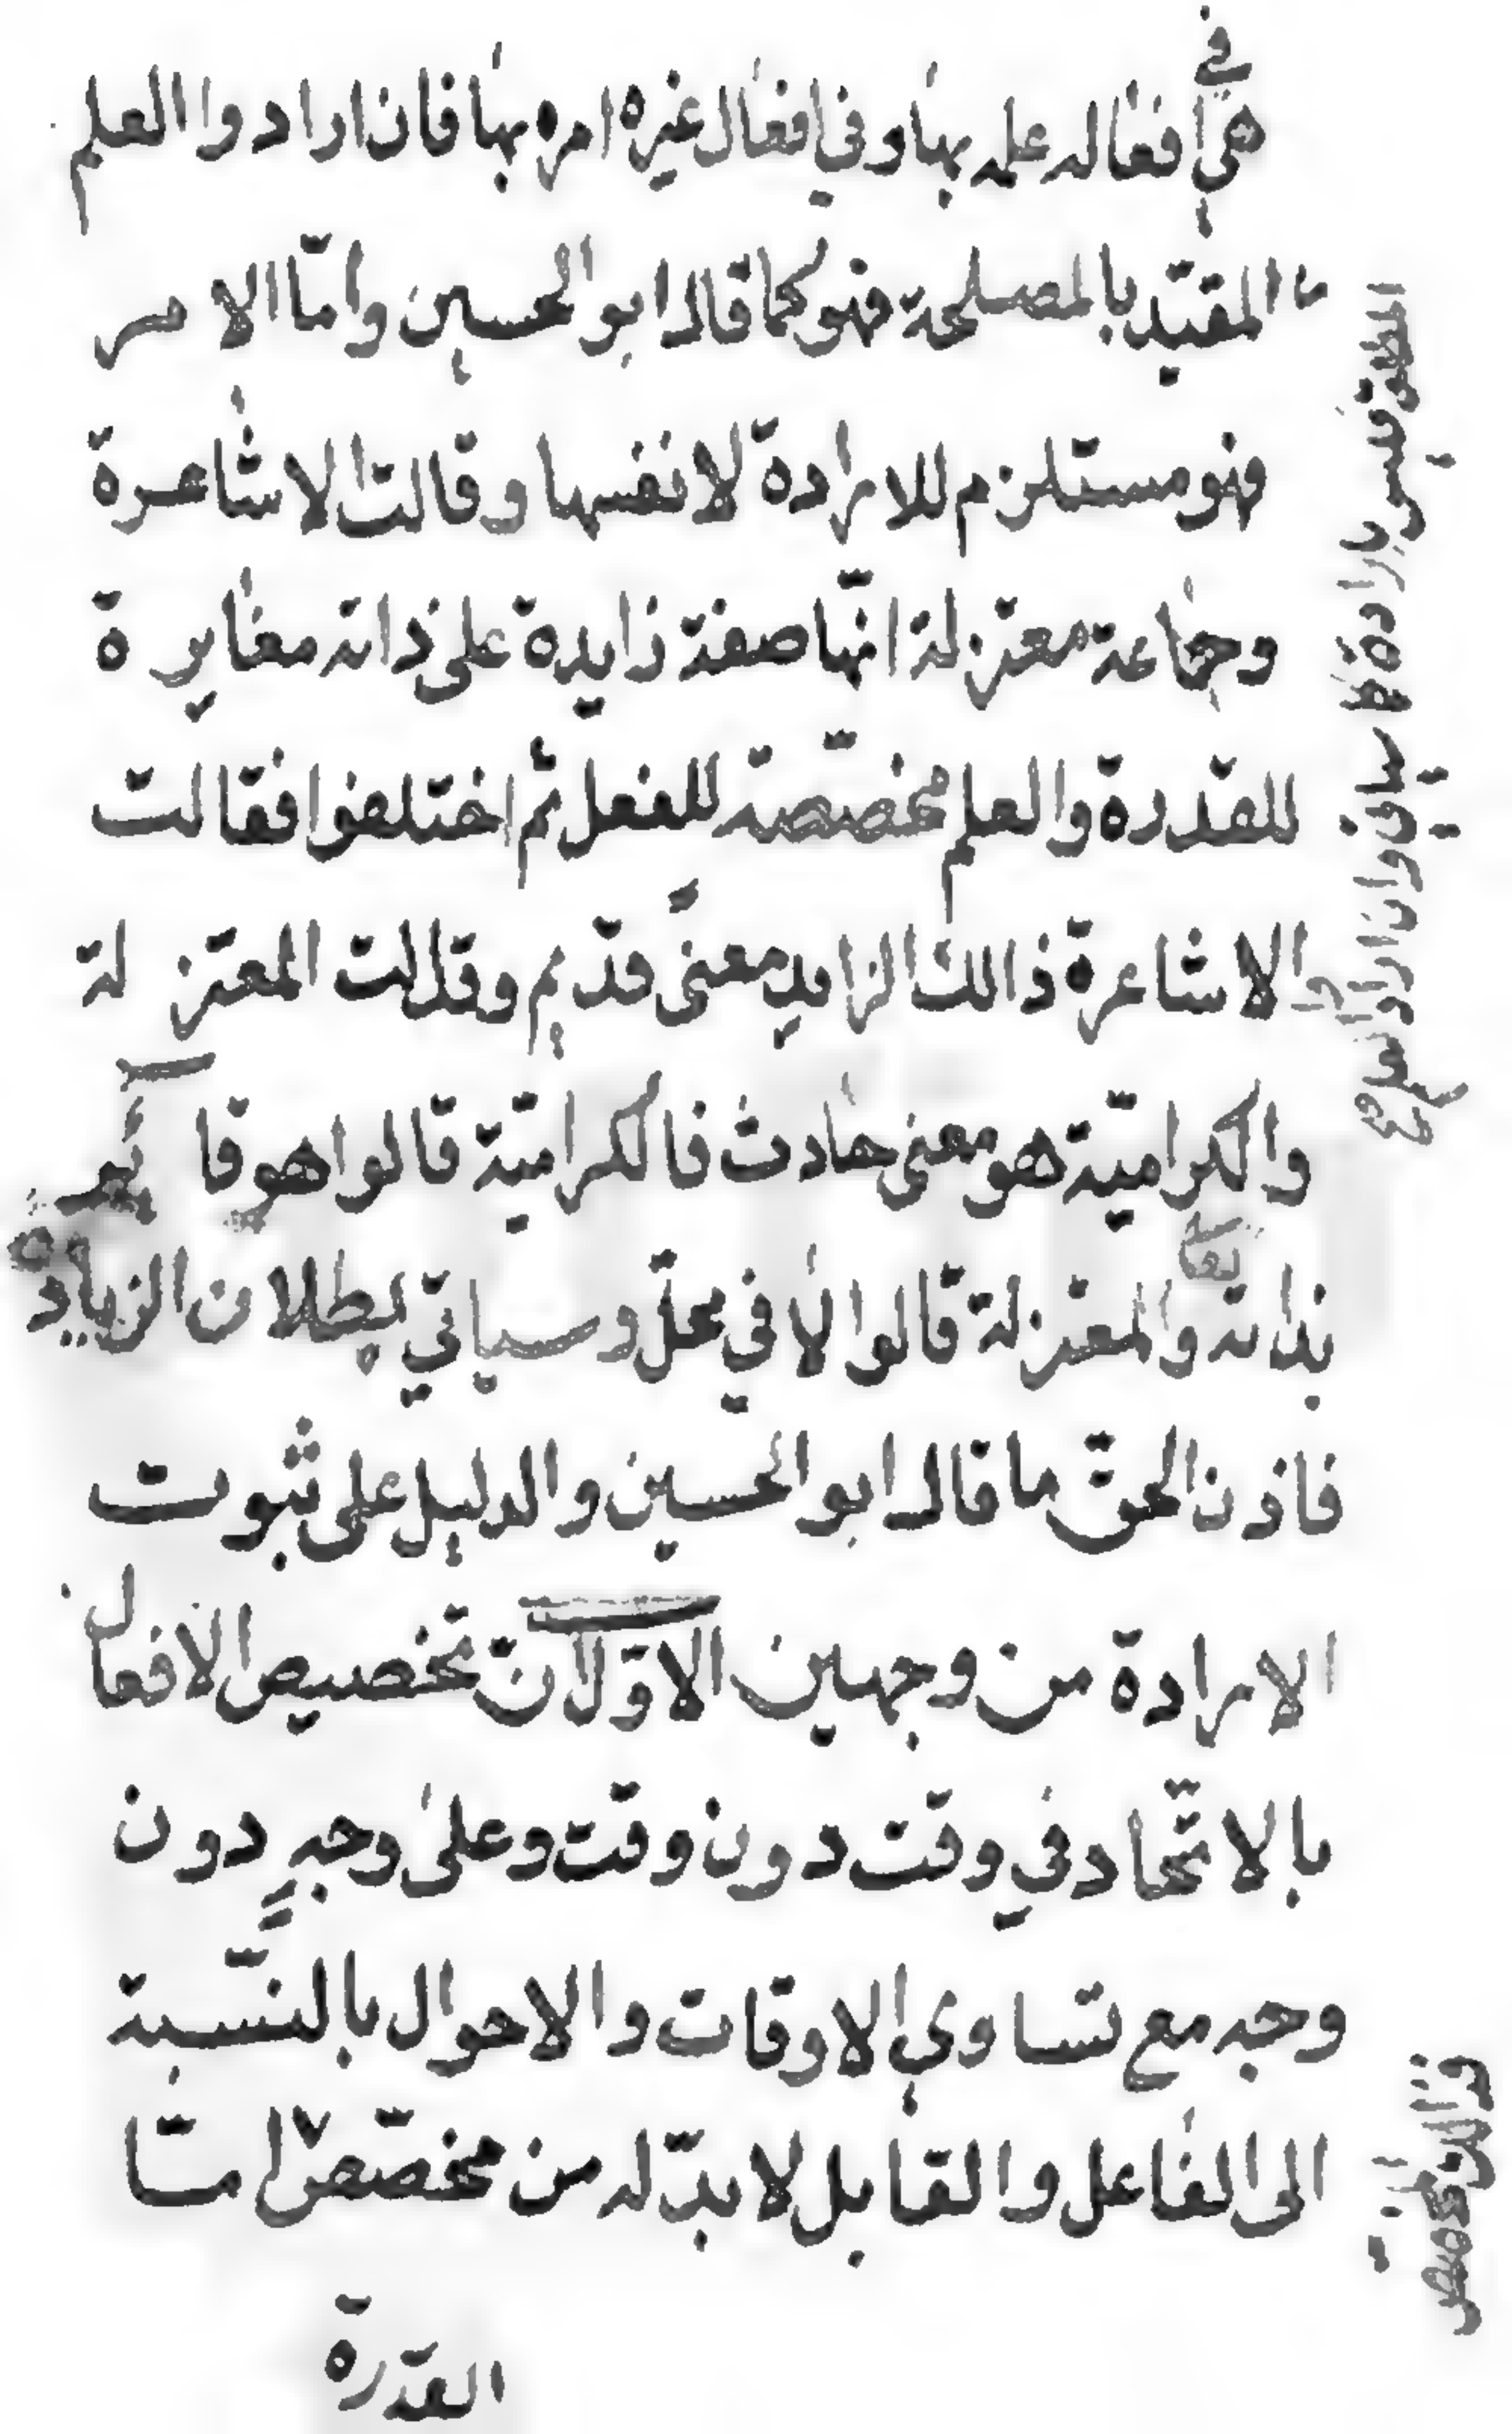 هي في افعاله علمه بها وفي افعال غيره امره بها فان ارادوا العلم
المطلق فليس بارادة كما سيأتي وان ارادوا العلم صح
المقيّد بالمصلحة فهو كما قال ابو الحسين وامّا الامر
فهو مستلزم للارادة لا نفسها وقالت الاشاعرة
وجماعة معتزلة انّها صفة زايدة على ذاته مغايرة
للقدرة والعلم مخصّصة للفعل ثم اختلفوا فقالت
الاشاعرة ذالك الزايد معنًى قديم وقالت المعتزلة
والكراميّة هو معنى حادث فالكراميّة قالوا هو قايم
بذاته تعالى والمعتزلة قالوا لا في محلّ وسيأتي بطلان الزيادة
فاذن الحق ما قال ابو الحسين والدليل على ثبوت
الارادة من وجهين الاوّل انّ تخصيص الافعال
بالاتّحاد في وقت دون وقت وعلى وجهٍ دون
وجه مع تساوي الاوقات والاحوال بالنّسبة
الى الفاعل والقابل لا بدّ له من مخصّص امّا
فذالك المخصص
القدرة